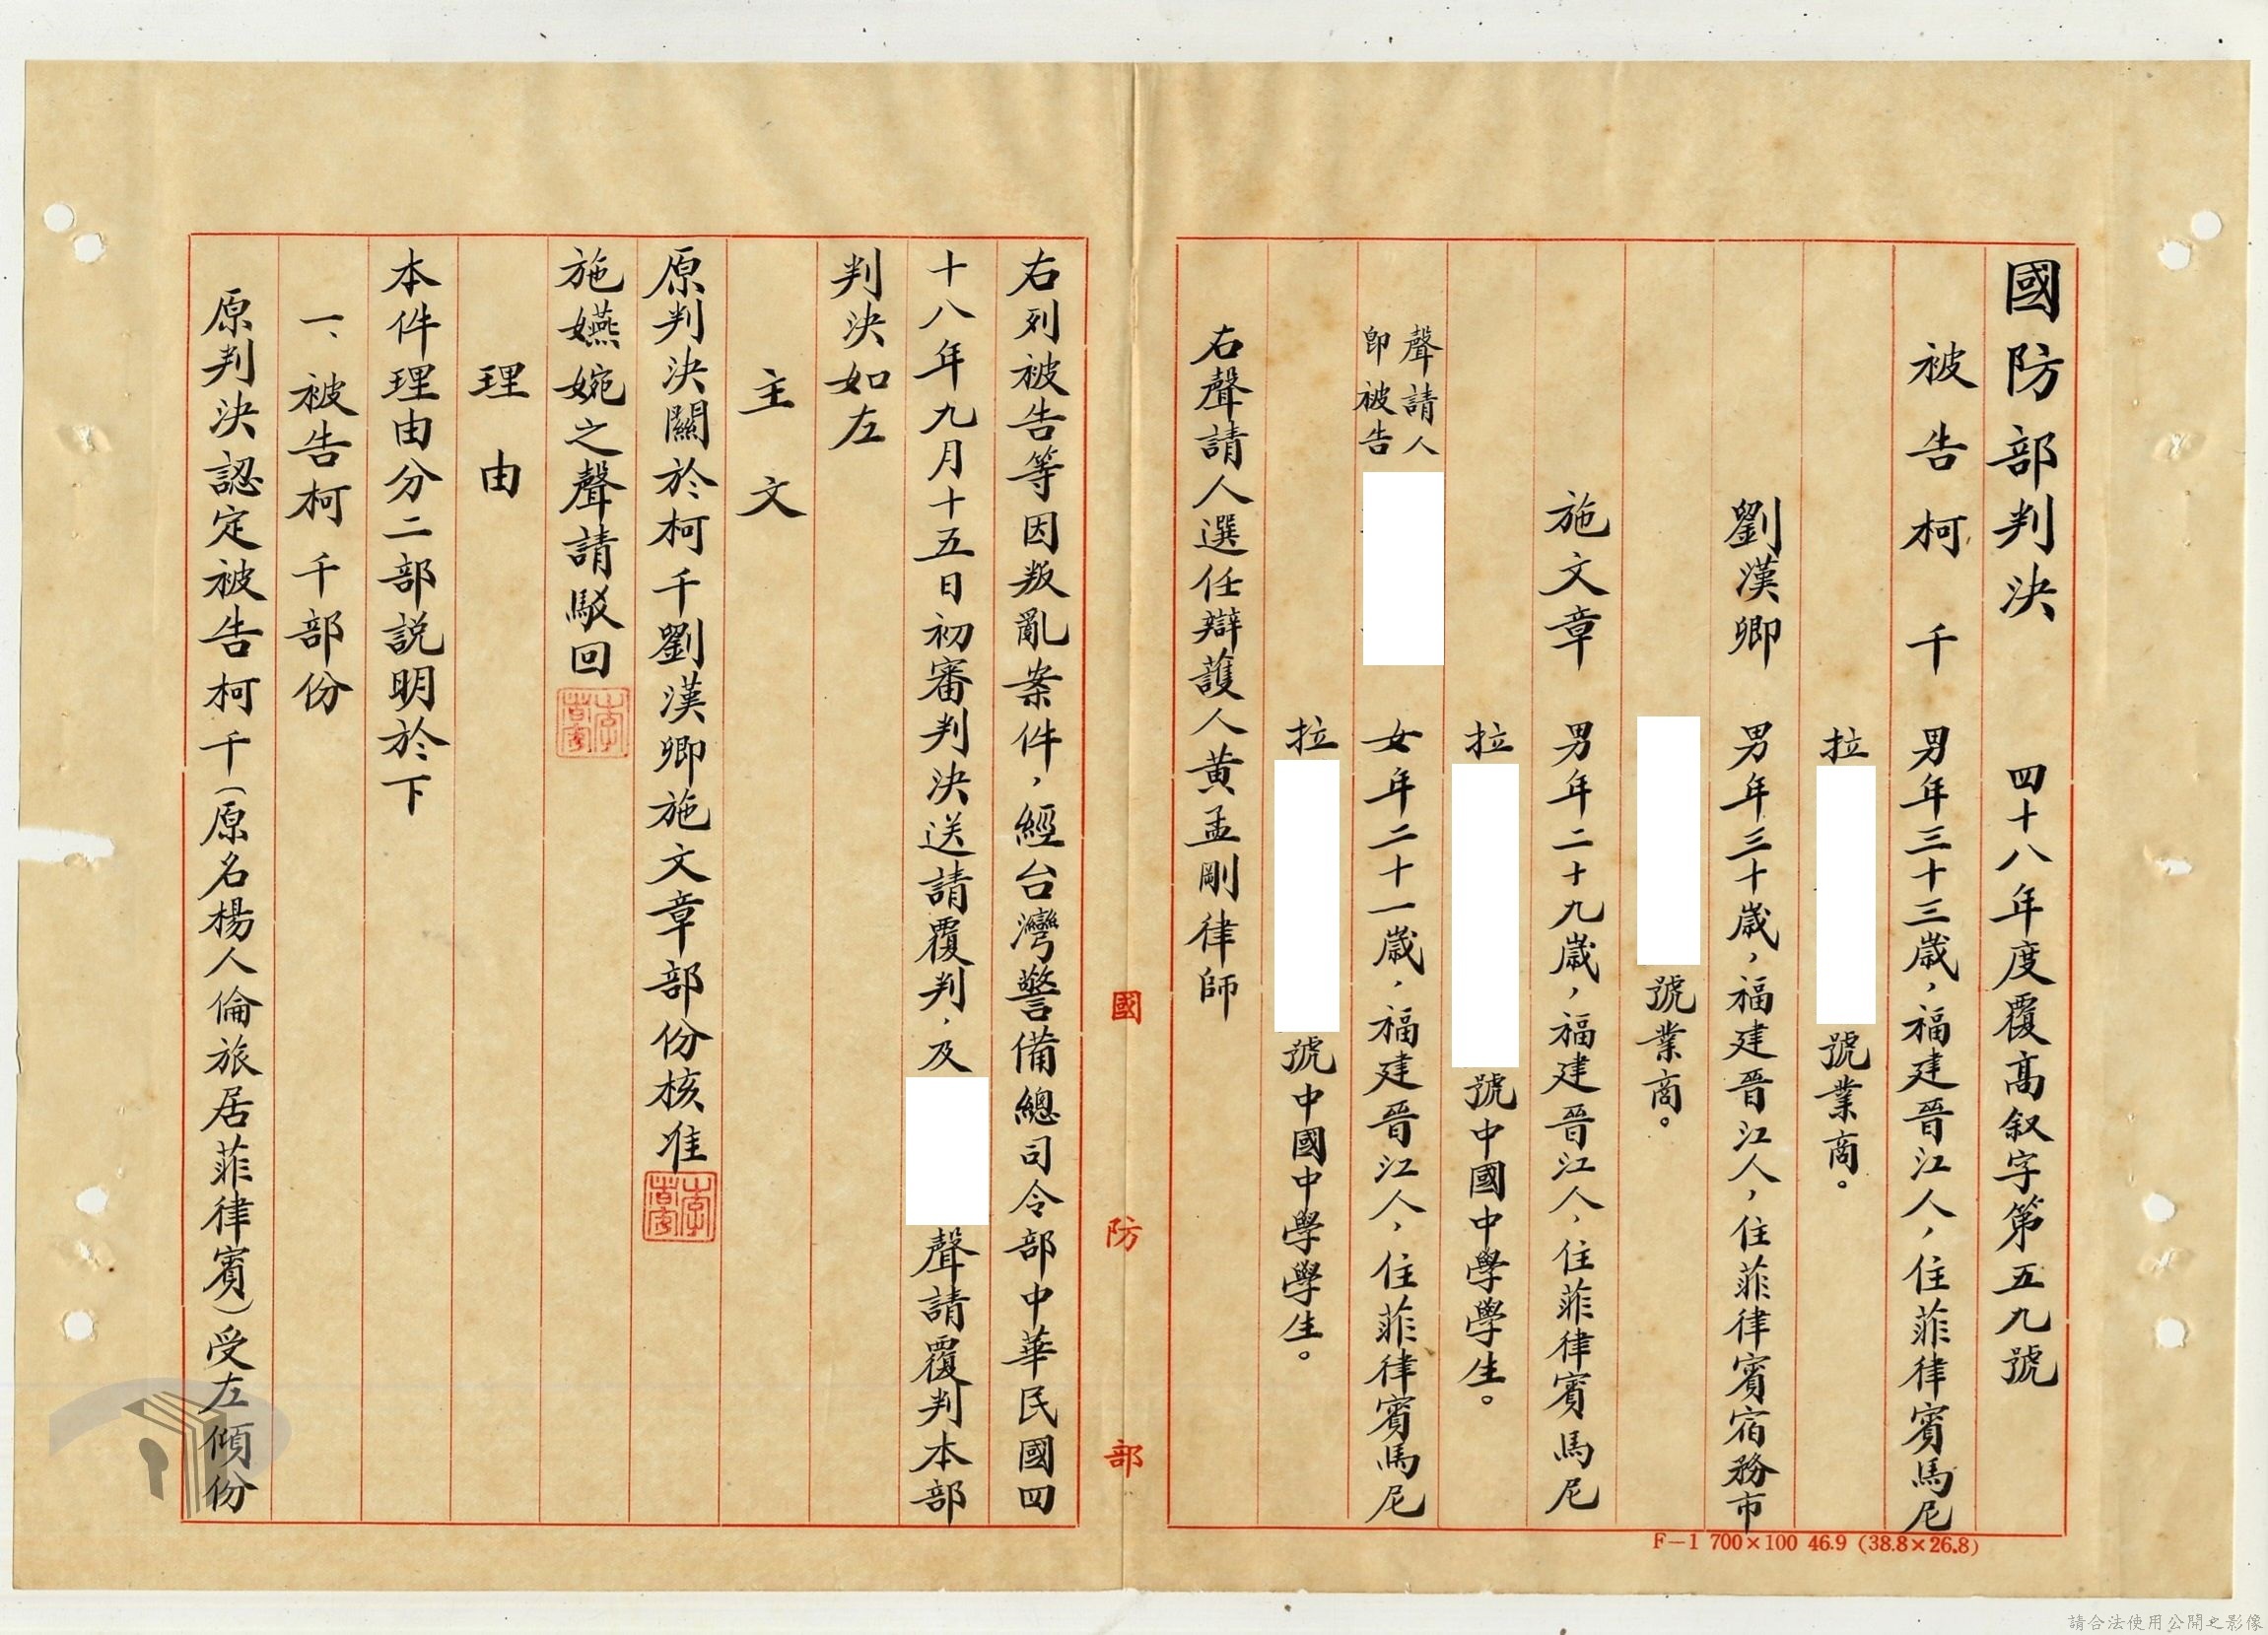 國防部判決　四十八年度覆高叙字第五九號
被告柯千　男年三十三歲，福建晉江人，住菲律賓馬尼
拉
號業商。
劉漢卿　男年三十歲，福建晉江人，住菲律賓宿務市
號業商。
施文章　男年二十九歲，福建晉江人，住菲律賓馬尼
拉
號中國中學學生。
聲請人
即被告
女年二十一歲，福建晉江人，住菲律賓馬尼
拉
號中國中學學生。
右聲請人選任辯護人黃孟剛律師
國防部
F-1 700×100 46.9 (38.8×26.8)
右列被告等因叛亂案件，經台灣警備總司令部中華民國四
十八年九月十五日初審判決送請覆判，及
聲請覆判本部
判決如左
主文
原判決關於柯千劉漢卿施文章部份核准
施嬿婉之聲請駁回
理由
本件理由分二部説明於下
一、被告柯千部份
原判決認定被告柯千（原名楊人倫旅居菲律賓）受左傾份
請合法使用公開之影像